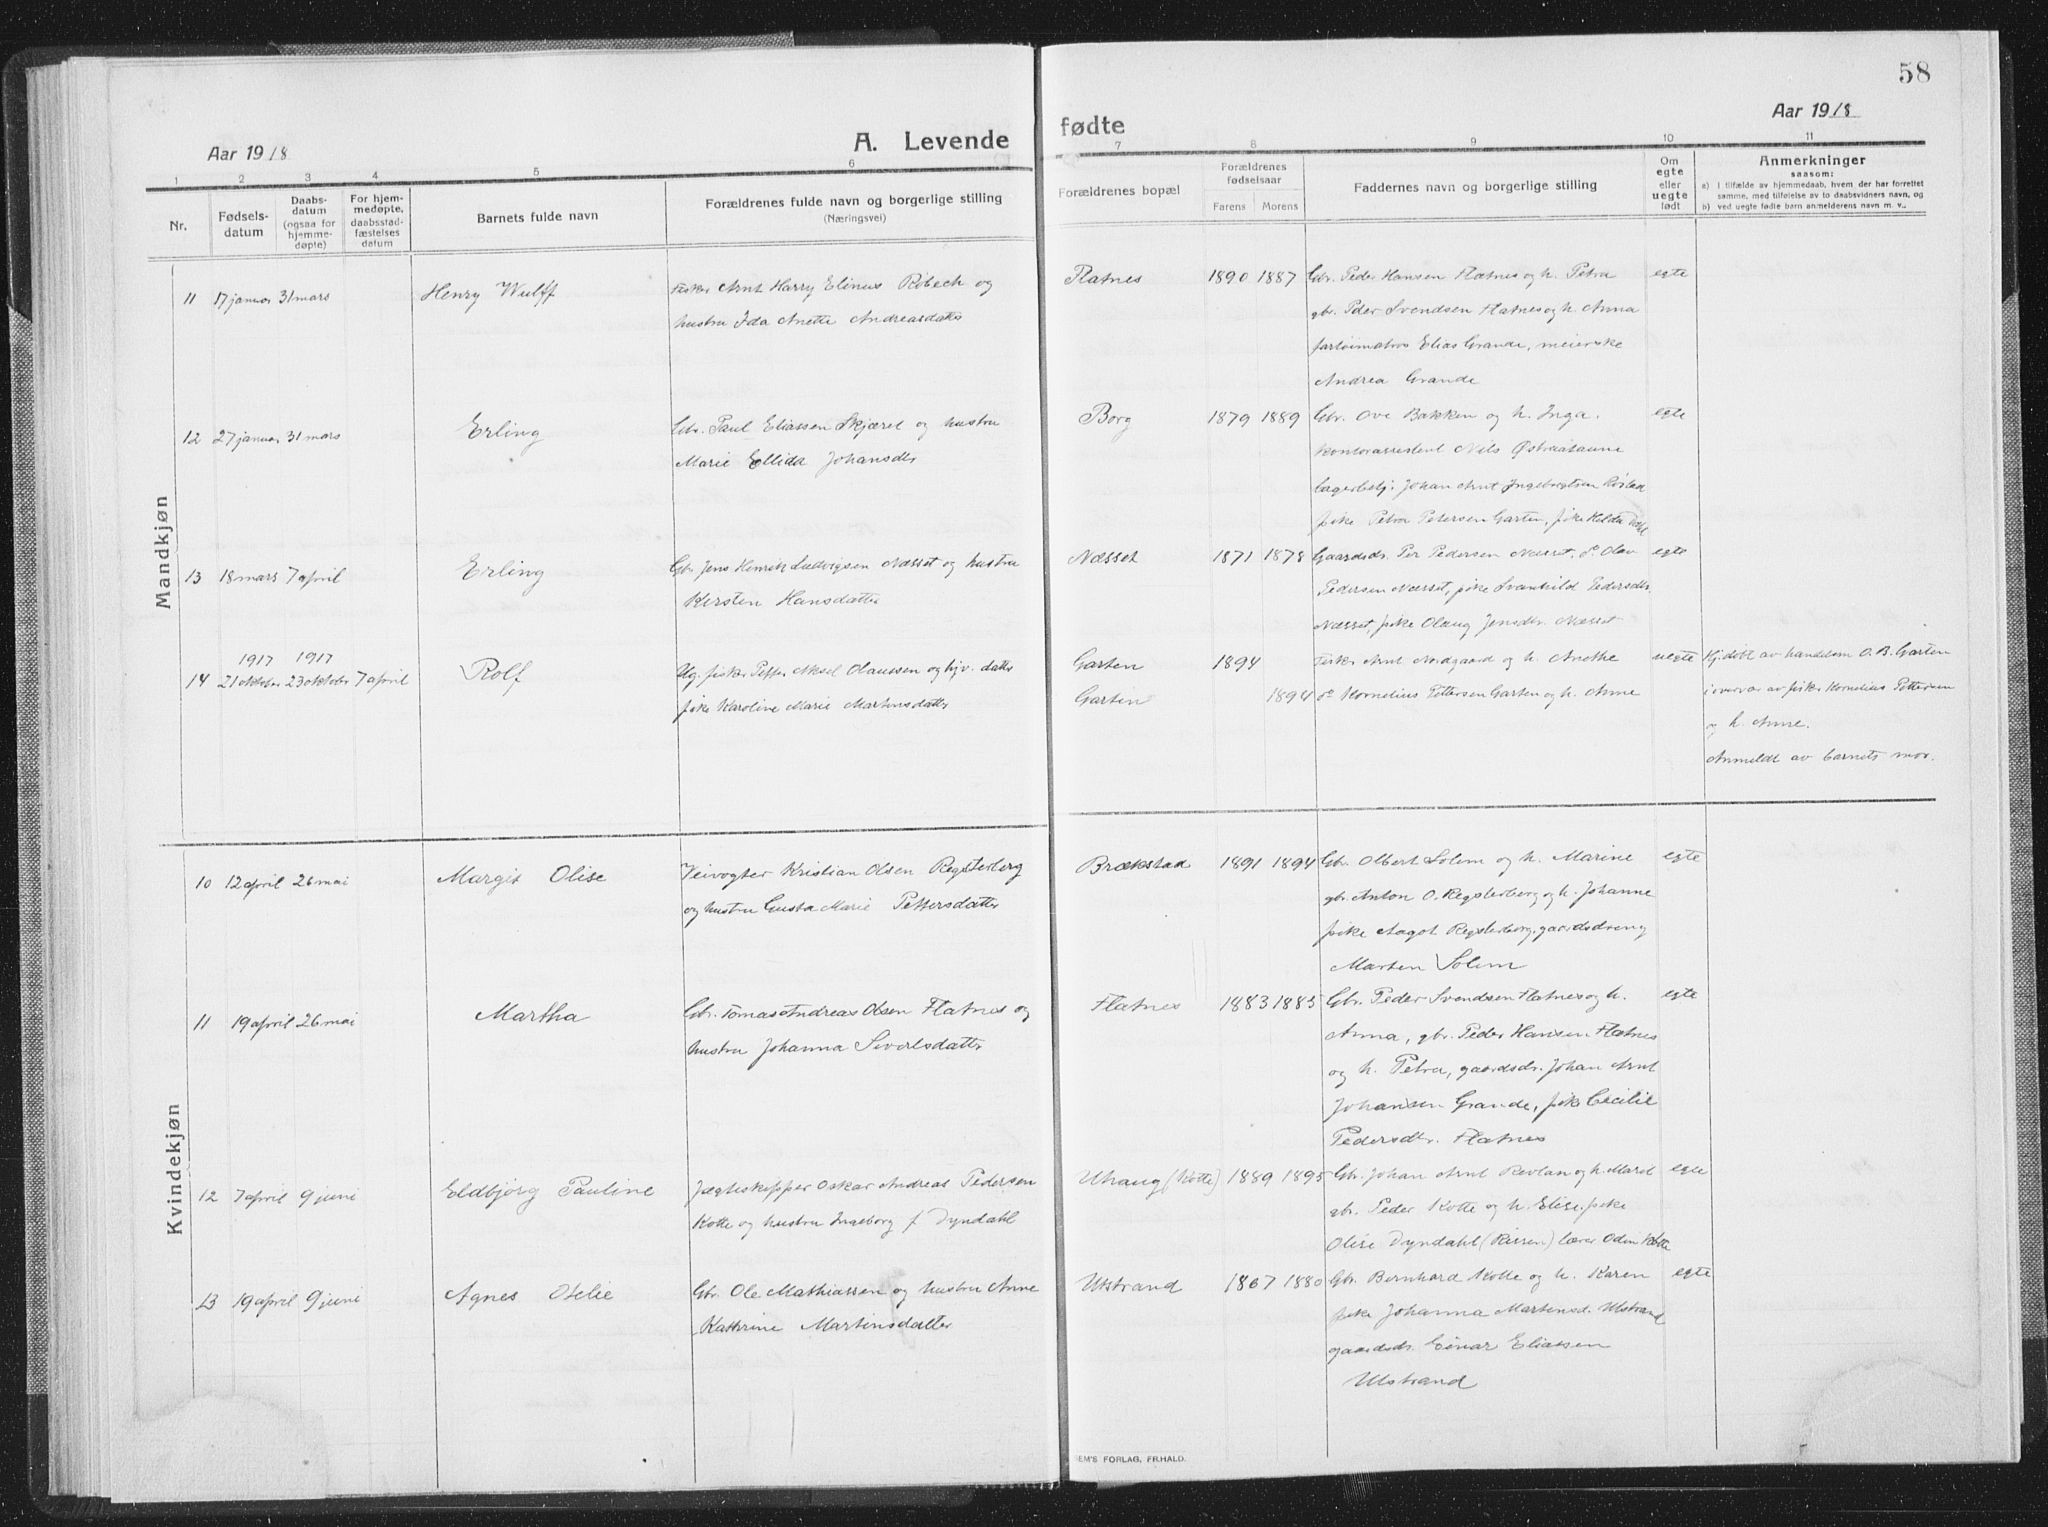 58
Aar 1918
A. Levende
fødte
Aar 1918
1 2 3 4 5 6 7 8 9 10 11
Nr.
Fødsels-
datum
Daabs-
datum
(ogsaa for
hjemme-
døpte)
For hjem-
medøpte,
daabsstad-
fæstelses
datum
Barnets fulde navn
Forældrenes fulde navn og borgerlige stilling
(Næringsvei)
Forældrenes bopæl
Forældrenes
fødselsaar
Farens Morens
Faddernes navn og borgerlige stilling
Om
egte
eller
uegte
født
Anmerkninger
saasom:
a) I tilfælde av hjemmedaab, hvem der har forrettet
samme, med tilføielse av to daabsvidners navn, og
b) ved uegte fødte barn anmelderens navn m. v..
Mandkjøn
11 17 januar 31 mars Henry Wulff
Fisker Arnt Harry Elinus Robech og
hustru Ida Anette Andreasdatter
Flatnes 1890 1887
Gbr. Peder Hansen Flatnes og h. Petra
gbr. Peder Svendsen Flatnes og h. Anna
fartøimatros Elias Grande, meierske
Andrea Grande
egte
12 27 januar 31 mars Erling
Gbr. Paul Eliassen Skjæret og hustru
Marie Ellida Johansdtr
Borg 1879 1889
Gbr. Ove Bakken og h. Inga.
Kontorassistent Nils Østraataune
lagerbetj. Johan Arnt Ingebrigtsen
pike Petra Petersen Garten, pike Helda
egte
13 18 mars 7 april Erling
Gbr. Jens Henrik Ludvigsen Næsset og hustru
Kersten Hansdatter
Næsset 1871 1878
Gaardsdr. Per Pedersen Næsset, do Olav
Pedersen Næsset, pike Svanhild Pedersdtr.
Næsset, pike Olaug Jensdtr. Næsset
egte
1917 1917
14 21 oktober 23 oktober 7 april Rolf
Ug. fisker Petter Aksel Olaussen og hjv. datter
pike Karoline Marie Martinsdatter
Garten 1894
Garten 1894
Fisker Arnt Nordgaard og h. Anethe
do Kornelius Pettersen Garten og h. Anne
uegte
Hjdøbt av handelsm O. B. Garten
i overvær av fisker Kornelius Pettersen
og h. Anne.
Anmeldt av barnets mor.
Kvindekjøn
10 12 april 26 mai Margit Olise
Veivogter Kristian Olsen Regsterberg
og hustru Gusta Marie Pettersdatter
Brækstad 1891 1894
Gbr. Olbert Solem og h. Marine
gbr. Anton O. Regsterberg og h. Johanne
pike Aagot Regsterberg, gaardsdreng
Marten Solem
egte
11 19 april 26 mai Martha
Gbr. Tomas Andreas Olsen Flatnes og
hustru Johanna Sivertsdatter
Flatnes 1883 1885
Gbr. Peder Svendsen Flatnes og h.
Anna, gbr. Peder Hansen Flatnes
og h. Petra, gaardsdr. Johan Arnt
Johansen Grande, pike Cecilie
Pedersdtr. Flatnes
egte
12 7 april 9 juni Eldbjørg Pauline
Jægteskipper Oskar Andreas Pedersen
Kotte og hustru Ingeborg f. Dyndahl
Uhaug (Kotte) 1889 1895
Gbr. Johan Arnt Revlan og h. Marit
gbr. Peder Kotte og h. Elise, pike
Olise Dyndahl (Rissen) lærer Odin Kotte
egte
13 19 april 9 juni Agnes Otelie
Gbr. Ole Mathiassen og hustru Anne
Kathrine Martinsdatter
Ulstrand 1867 1880
Gbr. Bernhard Kotte og h. Karen
pike Johanna Martensd. Ulstrand
gaardsdr. Einar Eliassen
Ulstrand
egte
SEM'S FORLAG, FR.HALD.